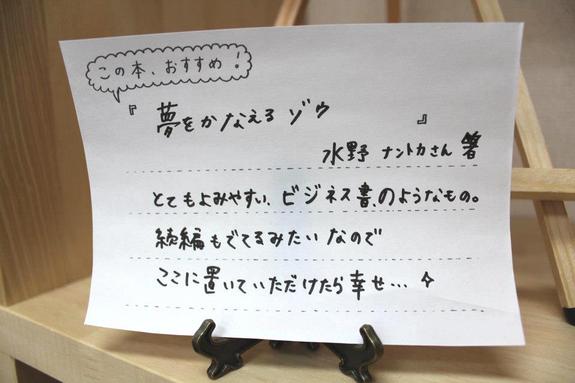 この本、おすすめ!
『夢をかなえるゾウ 』
水野 ナントカさん 箸
とてもよみやすい、ビジネス書、のようなもの。
続編もでてるみたいなので
ここに置いていただけたら幸せ…✧